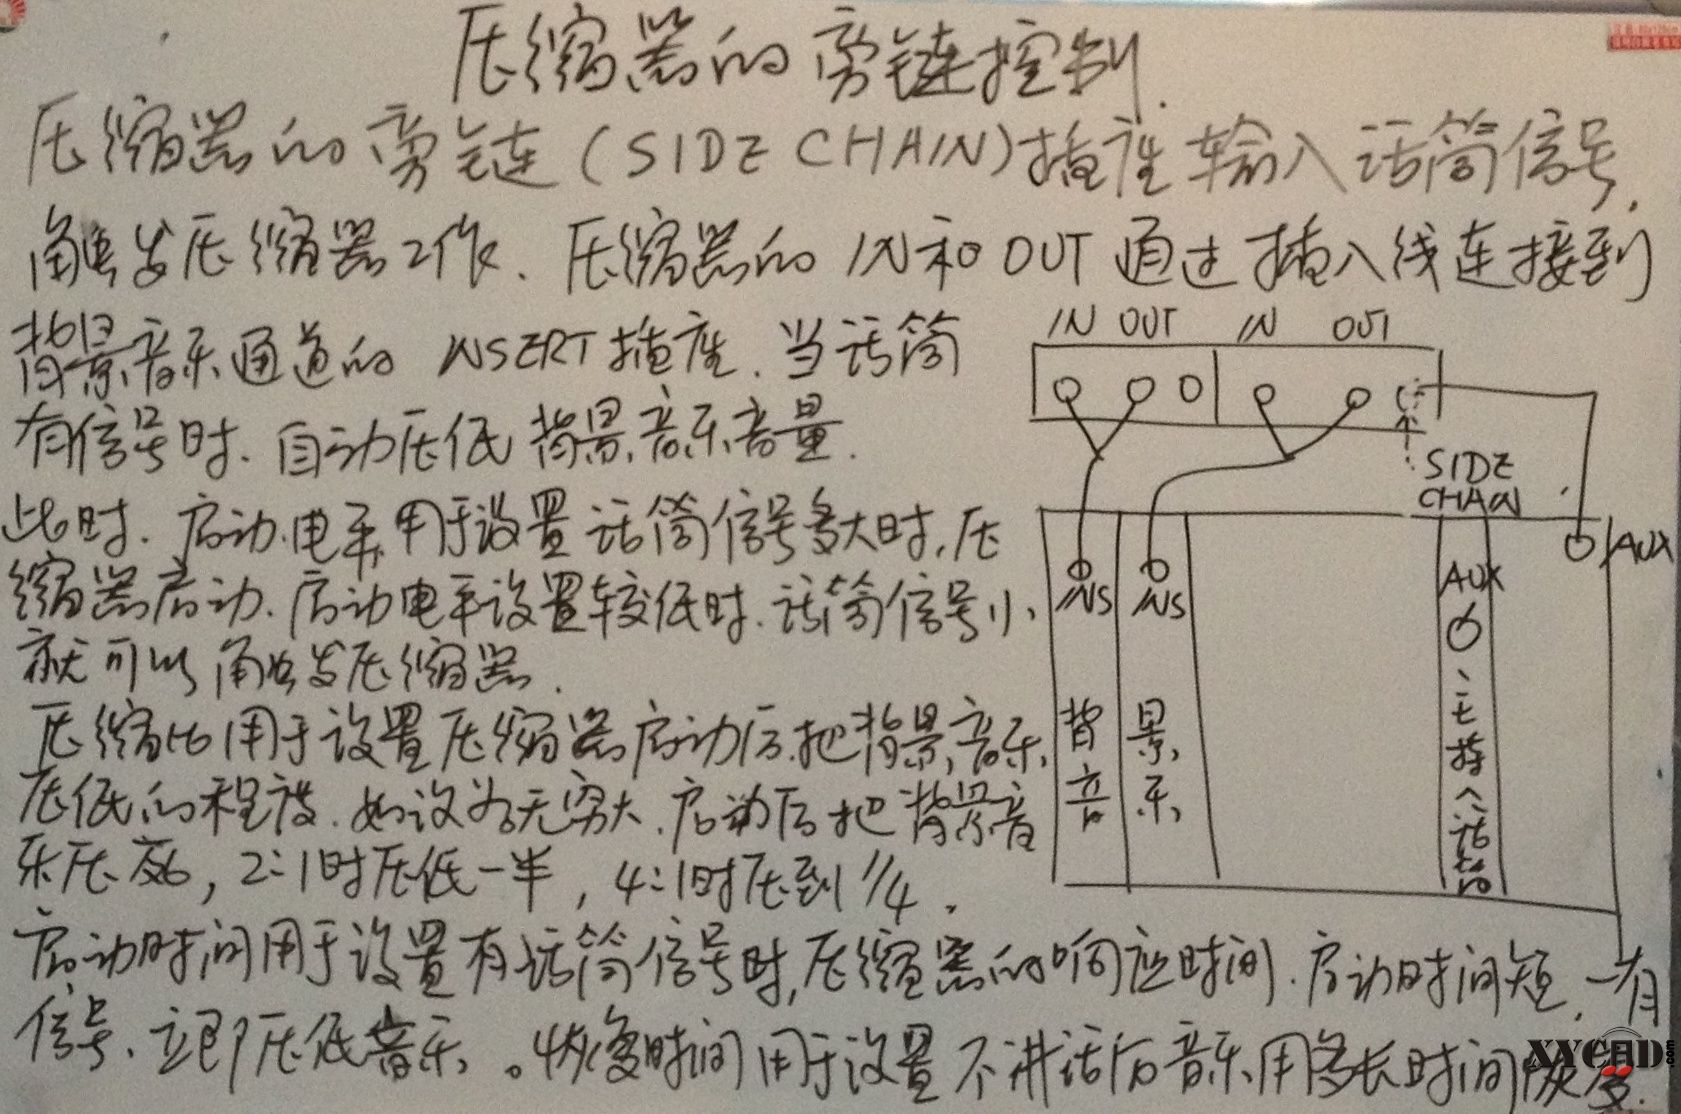 压缩器的旁链控制.
压缩器的旁链(SIDE CHAIN)插座输入话筒信号,
触发压缩器工作. 压缩器的 IN和 OUT 通过插入线连接到
背景音乐通道的 INSERT插座. 当话筒
有信号时. 自动压低背景音乐音量.
此时. 启动电平用于设置话筒信号多大时, 压
缩器启动. 启动电平设置较低时. 话筒信号小、
就可以触发压缩器.
压缩比用于设置压缩器启动后.把背景音乐
压低的程度. 如设为无穷大. 启动后把背景音
乐压死, 2:1时压低一半, 4:1时压到1/4.
启动时间用于设置有话筒信号时, 压缩器的响应时间. 启动时间短, 一有
信号、立即压低音乐。恢复时间用于设置不讲话后音乐用多长时间恢复.
IN OUT IN OUT
SIDE
CHAIN
AUX
INS INS
AUX
背景
音乐
主持人话筒
XYCAD.com